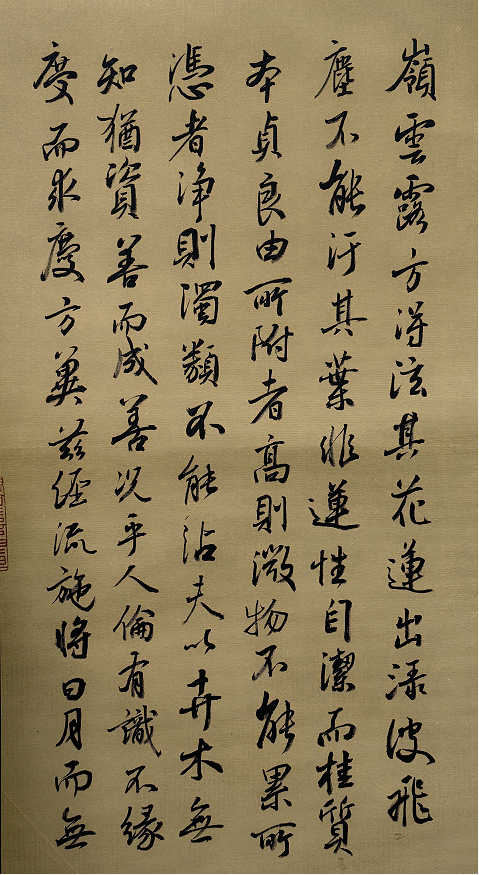 嶺雲露方得泫其花蓮出渌波飛
塵不能汙其葉非蓮性自潔而桂質
本貞良由所附者高則微物不能累所
憑者淨則濁類不能沾夫以卉木無
知猶資善而成善況乎人倫有識不緣
慶而求慶方冀茲經流施將日月而無